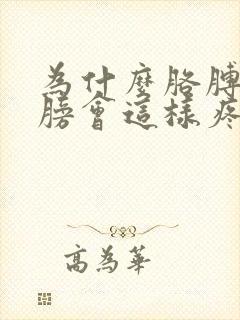 為什麼胳膊
膀會這樣疼
高為華